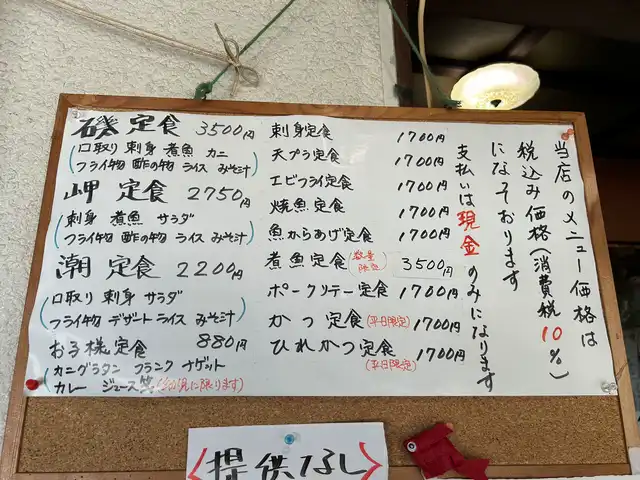 磯定食 3500円
(口取り 刺身 煮魚 カニ
フライ物 酢の物 ライス みそ汁)
岬定食 2750円
(刺身 煮魚 サラダ
フライ物 酢の物 ライス みそ汁)
潮定食 2200円
(口取り 刺身 サラダ
フライ物 デザート ライス みそ汁)
お子様定食 880円
(カニグラタン フランク ナゲット
カレー ジュース (幼児に限ります)
刺身定食 1700円
天プラ定食 1700円
エビフライ定食 1700円
焼魚定食 1700円
魚からあげ定食 1700円
煮魚定食 (数量限定) 3500円
ポークソテー定食 1700円
かつ定食 (平日限定) 1700円
ひれかつ定食 1700円
(平日限定)
当店のメニュー価格は
税込み価格(消費税10%)
になっております
支払いは現金のみになります
<提供なし>